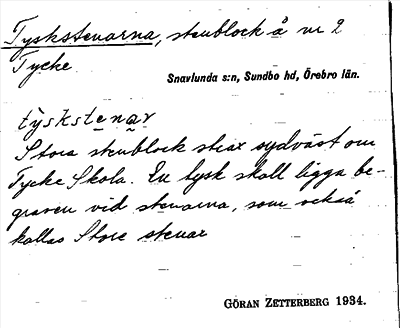 Tyskstenarna, stenblock å nr 2
Tycke
Snavlunda s:n, Sundbo hd, Örebro län.
tyskstenar
Stora stenblock strax sydväst om
Tycke Skola. En tysk skall ligga be-
graven vid stenarna, som också
kallas Store stenar
GÖRAN ZETTERBERG 1934.